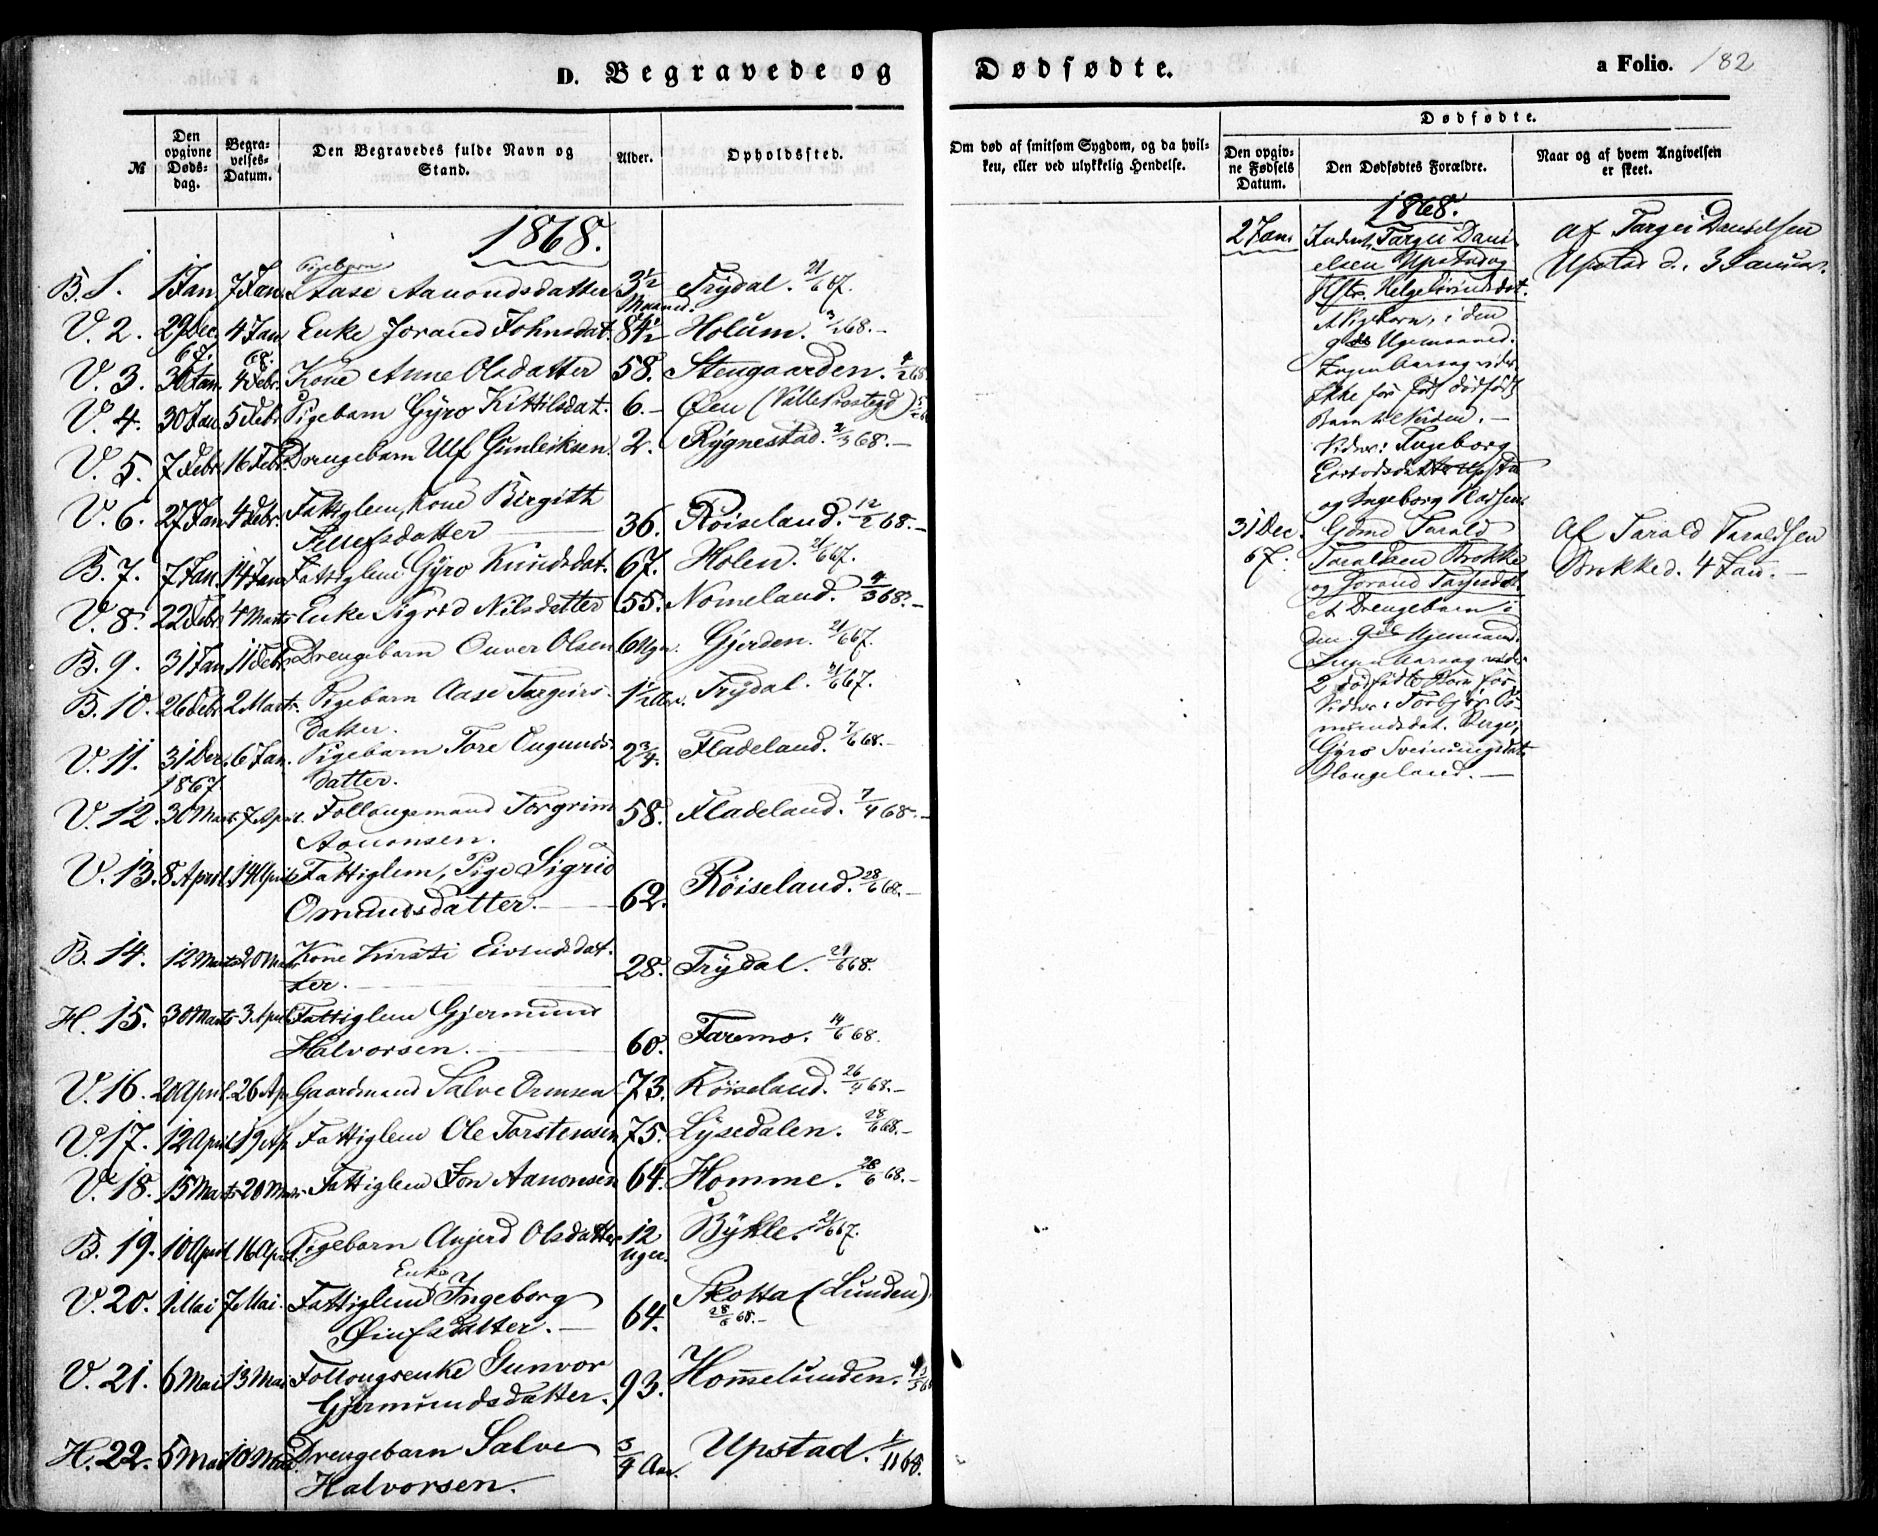 D. Begravede og Dødfødte.
a Folio. 182
№
Den opgivne Døds-dag.
Begravelses-Datum.
Den Begravedes fulde Navn og Stand.
Alder.
Opholdssted.
Om død af smitsom Sygdom, og da hvilken, eller ved ulykkelig Hendelse.
Dødfødte.
Den opgivne Fødsels Datum.
Den Dødfødtes Forældre.
Naar og af hvem Angivelsen er skeet.
1868.
B. 1. 1 Jan 7 Jan. Pigebarn Aase Aanondsdatter 3½ Maaned. Trydal. 21/6 67.
V. 2. 29 Dec. 67. 4 Jan 68. Enke Jorand Johnsdat. 84½ Holum. 3/1 68.-
V. 3. 30 Jan. 4 Febr. Kone Anne Olsdatter 58. Stengaarden. 4/2 68
V. 4. 30 Jan 5 Febr Pigebarn Gyro Kittilsdat. 6.- Øen (Valle Prestegd)
V. 5. 7 Febr. 16 Febr. Drengebarn Ulf Gunleiksen 2. Rygnestad. 2/3 68.-
V. 6. 27 Jan 4 Febr. Fattiglem, Kone Birgith
datter 36. Røiseland. 12/2 68.-
B. 7. 7 Jan. 14 Jan Fattiglem Gyro Knudsdat. 67. Holen. 21/6 67.
V. 8. 22 Febr 4 Marts Enke Sigrid Nilsdatter 55. Nomeland. 4/3 68.-
B. 9. 31 Jan 11 Febr. Drengebarn Ouver Olsen 6 Ugr. Gjerden. 21/6 67.
B. 10. 26 Febr 2 Marts. Pigebarn Aase Targeirs- 1½ Aar. Trydal. 21/6 67.
datter.
V. 11. 31 Dec. 6 Jan. Pigebarn Tore Ougunds- 2¾. Fladeland. 7/6 68.-
1867 datter.
V. 12. 30 Marts 7 April. Follougsmand Torgrim 58. Fladeland. 7/4 68.-
Aanonsen.
V. 13. 8 April. 14 April Fattiglem, Pige Sigrid
Omundsdatter.- 62. Røiseland. 28/6 68.-
B. 14. 12 Marts 20 Marts Kone Kirsti Eivindsdat-
ter. 28. Trydal. 29/6 68.
H. 15. 30 Marts 3 April Fattiglem Gjermund
Halvorsen. 60. Faremo. 14/6 68.
V. 16. 20 April. 26 Ap. Gaardmand Salve Ormsen 73. Røiseland. 26/4 68.-
V. 17. 12 April 19 Ap Fattiglem Ole Torstensen 75. Lysedalen. 28/6 68.-
V. 18. 15 Marts 20 Mar. Fattiglem Jon Aanonsen 64. Homme. 28/6 68.-
B. 19. 10 April 16 April. Pigebarn Anjerd Olsdatter 12 Uger. Bykle. 21/6 67.
V. 20. 1 Mai 7 Mai. Fattiglem Enke Ingeborg
datter.- 64. Skotta (Lunden). 28/6 68.-
V. 21. 6 Mai 13 Mai Follougsenke Gunvor
Gjermundsdatter. 93. Hommelunden.
H. 22. 5 Mai 10 Mai Drengebarn Salve ¾ Aar. Upstad. 1/11 68.
Halvorsen.
1868.
2 Jan.
Targei Dani-
elsen Upstad og
Helge Eivindsdat.
et Pigebarn, i den
9de Ugemaaned.
Ingen Aarsag vides.
Ikke før født dødfødt
Barn til Verden.-
Vidner: Ingeborg
Eivindsdatter Upstad
og Ingeborg
af Targei Danielsen
Upstad d. 3 Januar.
31 Dec. 67. Gdmd Tarald
Taraldsen Brokke
og Jorand
et Drengebarn i
den 9de Ugemaaned.
Ingen Aarsag vides.
2 dødfødte Børn før.
Vidner: Torbjør Os-
mundsdat. Berge,
Gyro Sveinungsdat.
Haugeland.-
Af Tarald Taraldsen
Brokke d. 4 Jan.-